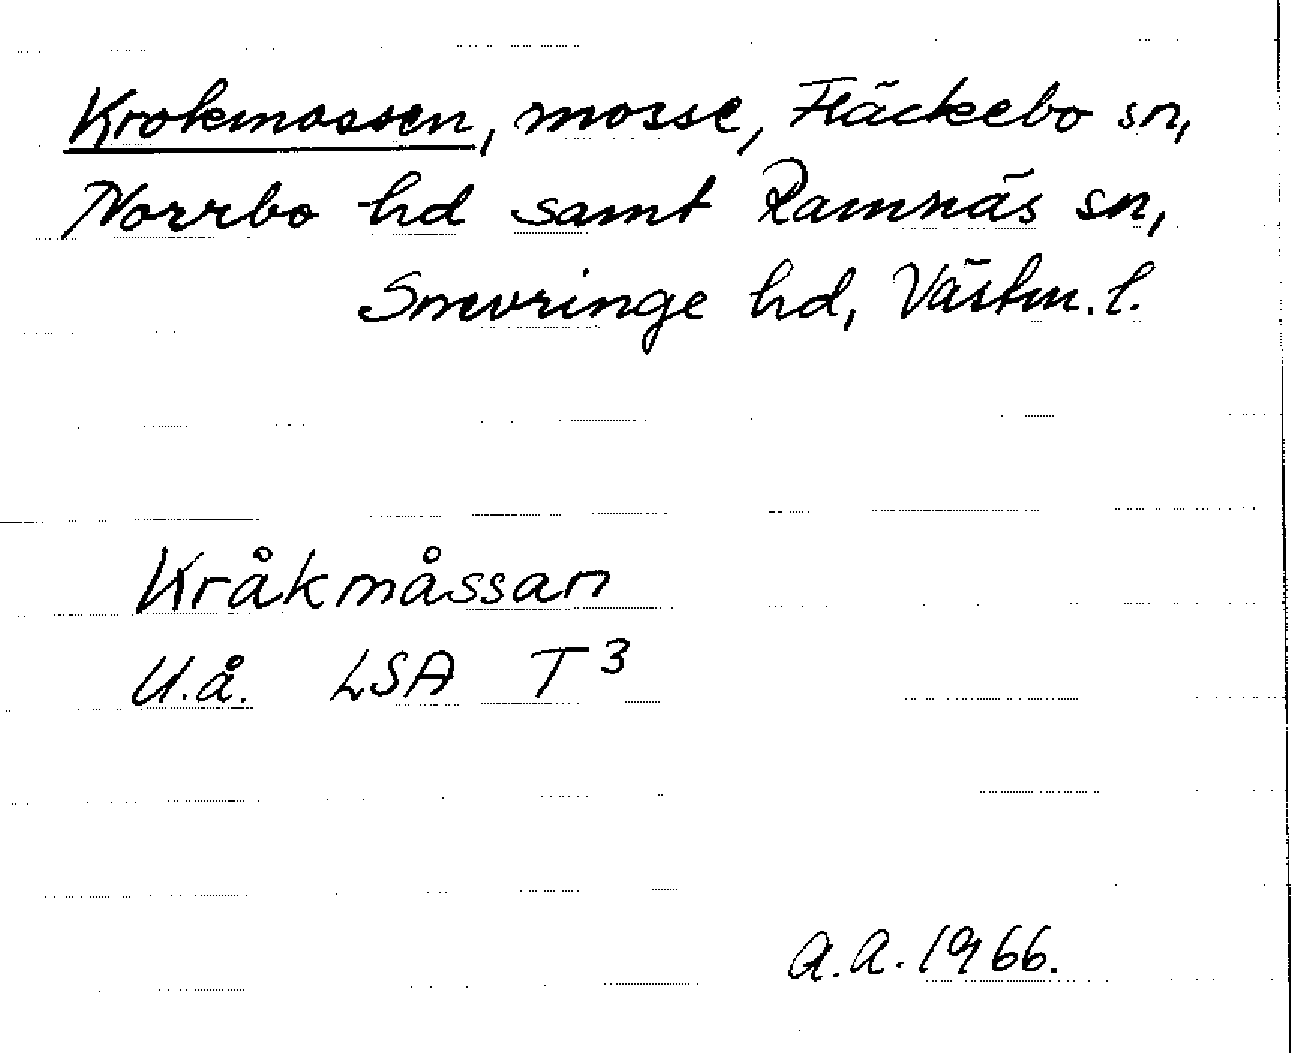 Krokmossen, mosse, Fläckebo sn,
Norrbo hd samt Ramnäs sn,
Snevringe hd, Västm. l.
Kråkmåssan
U.å. LSA T³
A.A. 1966.